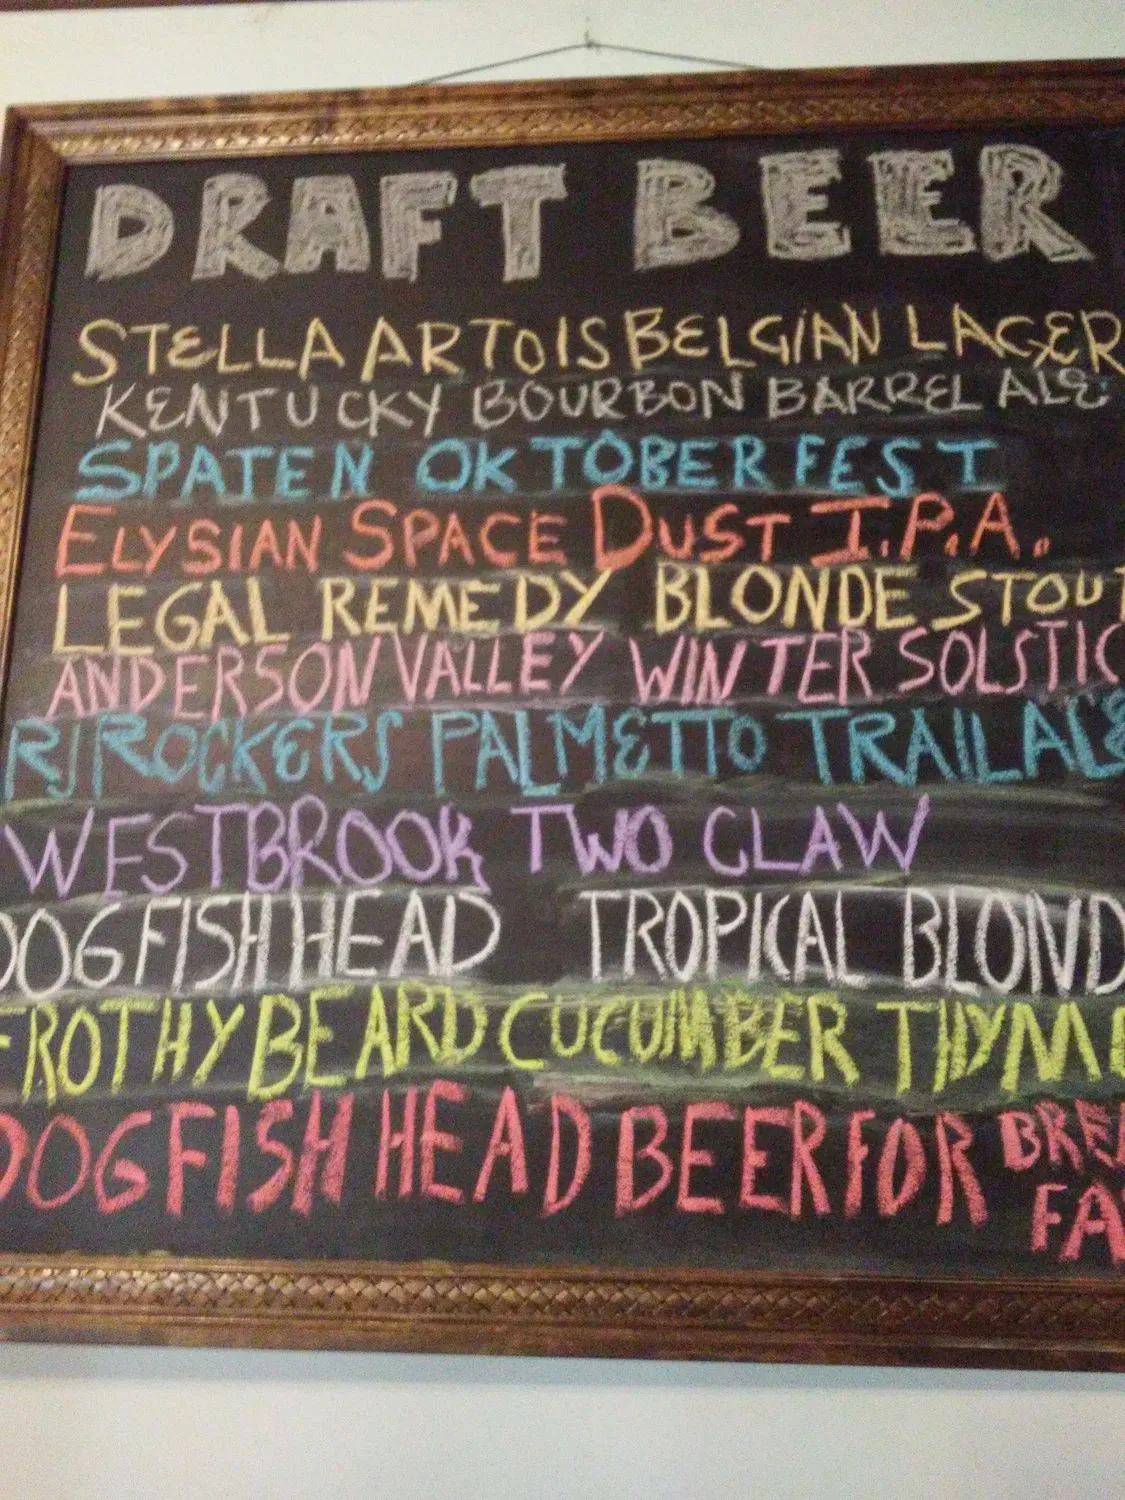 DRAFT BEER
STELLA ARTOIS BELGIAN LAGER
KENTUCKY BOURBON BARREL ALE
SPATEN OKTOBERFEST
ELYSIAN SPACE DUST I.P.A.
LEGAL REMEDY BLONDE STOUT
ANDERSON VALLEY WINTER SOLSTIC
RJ ROCKERS PALMETTO TRAIL ALE
WESTBROOK TWO CLAW
DOGFISH HEAD TROPICAL BLOND
FROTHY BEARD CUCUMBER THYME
DOGFISH HEAD BEER FOR BREA
FA